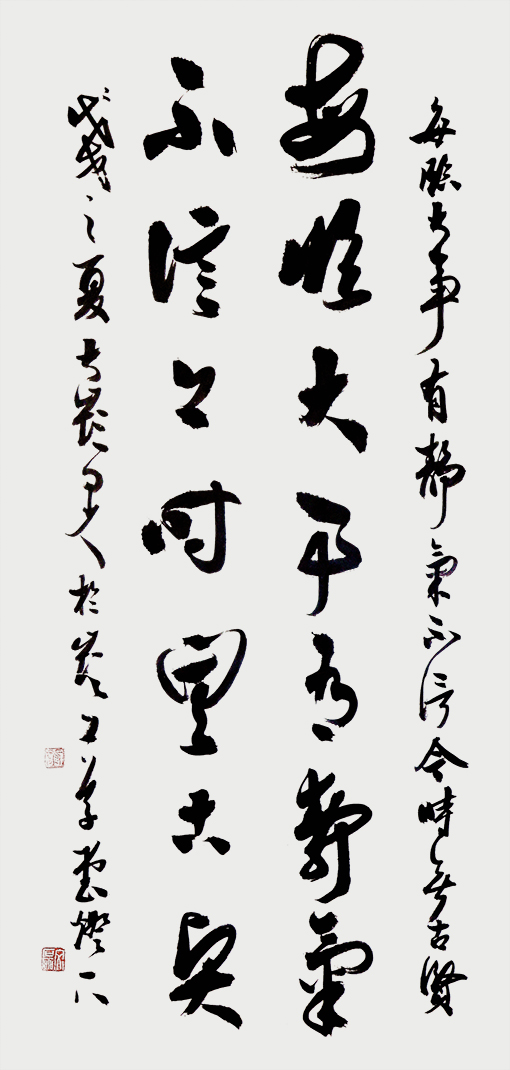 每臨大事有靜氣不信今時無古賢
每臨大事有靜氣
不信今時無古賢
戊戌之夏於上草堂燈下